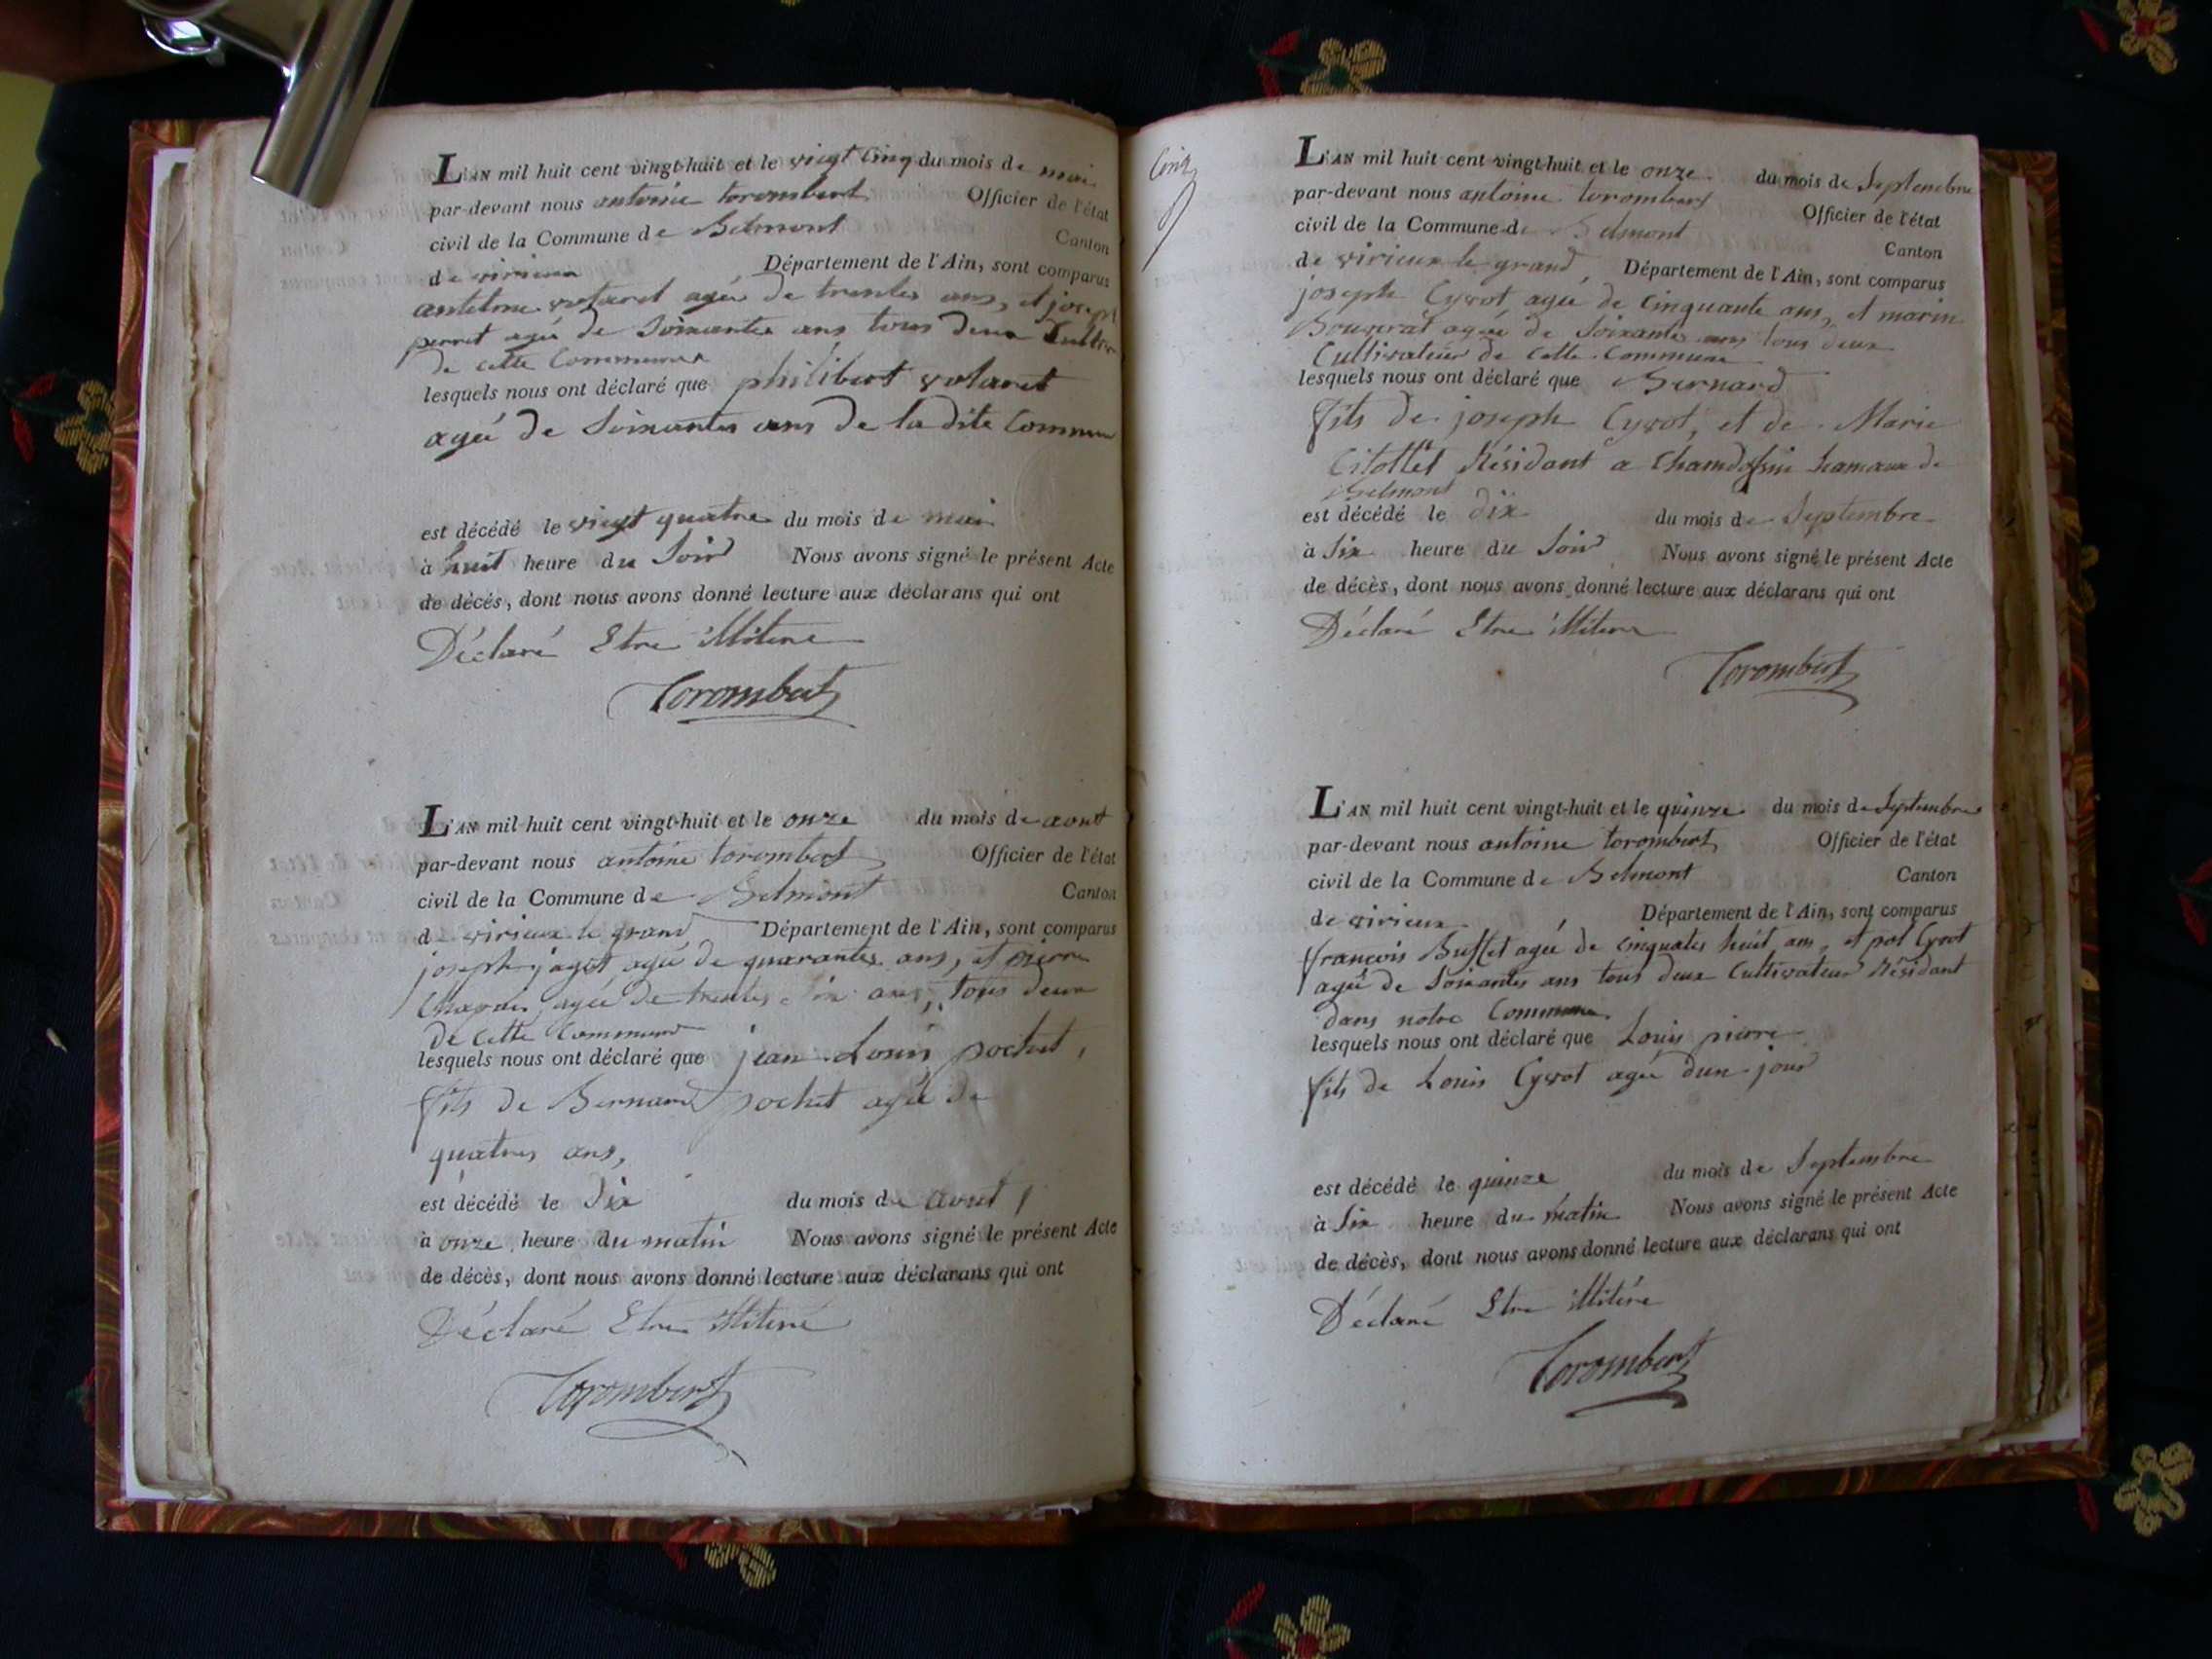 L'AN mil huit cent vingt-huit et le vingt Cinq du mois de mai
par-devant nous antoine torombert Officier de l'état
civil de la Commune de Belmont Canton
de virieux Département de l'Ain, sont comparus
antelme volaret agée de trentes ans, et joseph
perret agé de Soixantes ans tous deux
de cette Commune
lesquels nous ont déclaré que philibert volaret
agée de Soixantes ans de la dite Commune
est décédé le vingt quatre du mois de mai
à huit heure du Soir Nous avons signé le présent Acte
de décès, dont nous avons donné lecture aux déclarans qui ont
Déclaré Etre illitere
Torombert
L'AN mil huit cent vingt-huit et le onze du mois de aout
par-devant nous antoine torombert Officier de l'état
civil de la Commune de Belmont Canton
de virieux le grand Département de l'Ain, sont comparus
joseph jagot agée de quarantes ans, et pierre
agée de trentes ans, tous deux
de cette Commune
lesquels nous ont déclaré que jean Louis pochet,
fils de Bernard pochet agée de
quatres ans,
est décédé le Dix du mois de aout
à onze heure du matin Nous avons signé le présent Acte
de décès, dont nous avons donné lecture aux déclarans qui ont
Déclaré Etre illiteré
Torombert
Cinq
L'AN mil huit cent vingt-huit et le onze du mois de Septembre
par-devant nous antoine torombert Officier de l'état
civil de la Commune de Belmont Canton
de virieux le grand Département de l'Ain, sont comparus
joseph Cyvot agée de Cinquante ans, et marin
agée de Soixantes ans tous deux
Cultivateur de cette Commune
lesquels nous ont déclaré que Bernard
fils de joseph Cyvot, et de Marie
Résidant a hamaux de
Belmont
est décédé le dix du mois de Septembre
à Six heure du Soir Nous avons signé le présent Acte
de décès, dont nous avons donné lecture aux déclarans qui ont
Déclaré Etre illitere
Torombert
L'AN mil huit cent vingt-huit et le quinze du mois de Septembre
par-devant nous antoine torombert Officier de l'état
civil de la Commune de Belmont Canton
de virieux Département de l'Ain, sont comparus
françois Buffet agée de cinquates huit ans, et pol Cyvot
agée de Soixantes ans tous deux Cultivateur Résidant
dans notre Commune.
lesquels nous ont déclaré que Louis pierre
fils de Louis Cyvot agée dun jour
est décédé le quinze du mois de Septembre
à Six heure du matin Nous avons signé le présent Acte
de décès, dont nous avons donné lecture aux déclarans qui ont
Déclaré Etre illitére
Torombert